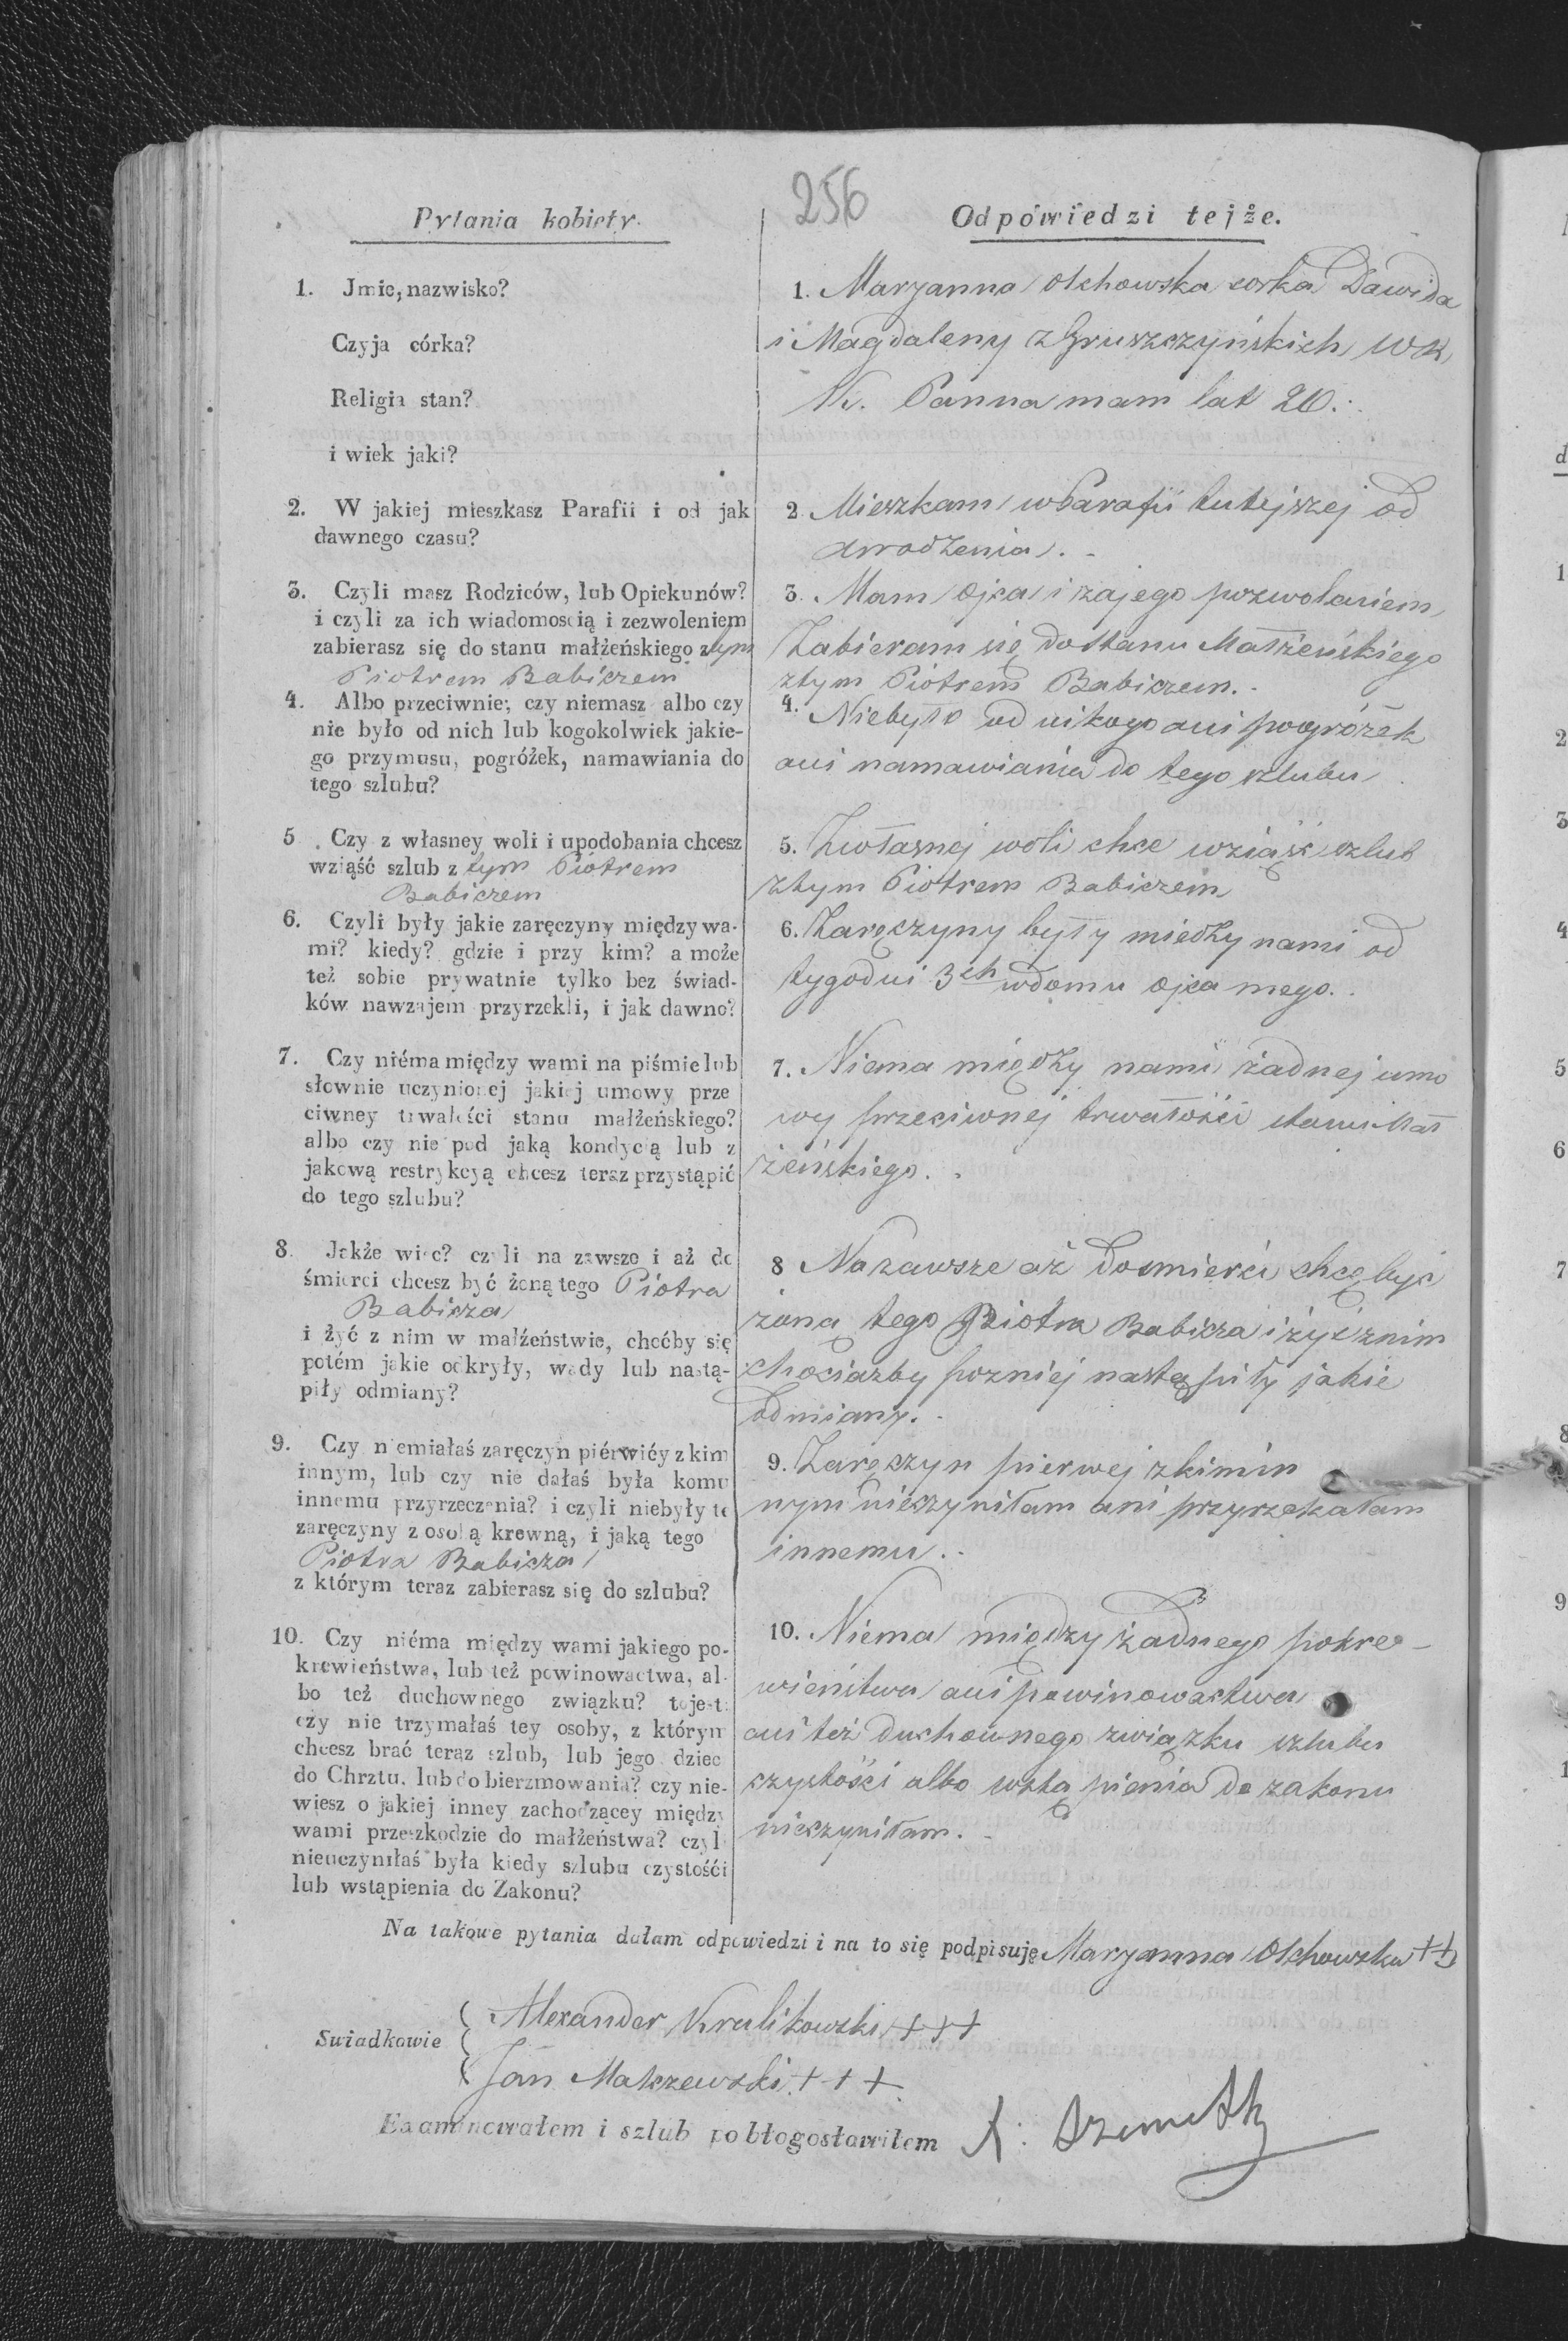 256
Pytania kobiety.
1. Jmie, nazwisko?
Czyja córka?
Religia stan?
i wiek jaki?
2. W jakiej mieszkasz Parafii i od jak
dawnego czasu?
3. Czyli masz Rodziców, lub Opiekunów?
i czyli za ich wiadomoscią i zezwoleniem
zabierasz się do stanu małżeńskiego z tym
Piotrem Babiczem
4. Albo przeciwnie, czy niemasz albo czy
nie było od nich lub kogokolwiek jakie-
go przymusu, pogróżek, namawiania do
tego szlubu?
5. Czy z własney woli i upodobania chcesz
wziąść szlub z tym Piotrem
Babiczem
6. Czyli były jakie zaręczyny między wa-
mi? kiedy? gdzie i przy kim? a może
też sobie prywatnie tylko bez świad-
ków nawzajem przyrzekli, i jak dawno?
7. Czy niéma między wami na piśmie lub
słownie uczynionej jakiej umowy prze
ciwney trwałości stanu małżeńskiego?
albo czy nie pod jaką kondycią lub z
jakową restrykcyą chcesz teraz przystąpić
do tego szlubu?
8. Jakże więc? czyli na zawsze i aż do
śmierci chcesz być żoną tego Piotra
Babicza
i żyć z nim w małżeństwie, choćby się
potém jakie odkryły, wady lub nastą-
piły odmiany?
9. Czy niemiałaś zaręczyn piérwiéy z kim
innym, lub czy nie dałaś była komu
innemu przyrzeczenia? i czyli niebyły te
zaręczyny z osobą krewną, i jaką tego
Piotra Babicza
z którym teraz zabierasz się do szlubu?
10. Czy niéma między wami jakiego po-
krewieństwa, lub też powinowactwa, al-
bo też duchownego związku? to jest:
czy nie trzymałaś tey osoby, z którym
chcesz brać teraz szlub, lub jego dziec
do Chrztu, lub do bierzmowania? czy nie-
wiesz o jakiej inney zachodzącey między
wami przeszkodzie do małżeństwa? czyl
nieuczyniłaś była kiedy szlubu czystośći
lub wstąpienia do Zakonu?
Odpówiedzi tejże.
1. Maryanna Olchowska corka Dawida
i Magdaleny z Gruszczyńskich, WR
K. Panna mam lat 20.
2. Mieszkam w Parafii tutejszej od
urodzenia.
3. Mam ojca i zajego pozwoleniem
Zabieram się do stanu Małżeńskiego
ztym Piotrem Babiczem.
4. Niebyło od nikogo ani pogróżek
ani namawiania do tego szlubu
5. Zwłasnej woli chce wziąść szlub
ztym Piotrem Babiczem
6. Zaręczyny były miedzy nami od
tygodni 3ch wdomu ojca mego.
7. Niema między nami żadnej umo
wy przeciwnej trwałości stanu Mał
żeńskiego.
8 Nazawsze aż do smierci chcę byc
żoną tego Piotra Babicza i żyć znim
chociazby pozniej nastąpiły jakie
odmiany.
9. Zaręczyn pierwej zkimin
nym nieczyniłam ani przyrzekałam
innemu.
10. Niema między żadnego pokre-
wieństwa ani powinowactwa
ani też duchownego związku szlubu
czystości albo wstąpienia do zakonu
nieczyniłam.
Na takowe pytania dałam odpowiedzi i na to się podpisuję Maryanna Olchowska ++
Swiadkowie
Alexander Krulikowski +++
Jan Makzewski +++
Examinowałem i szlub pobłogosławiłem X.